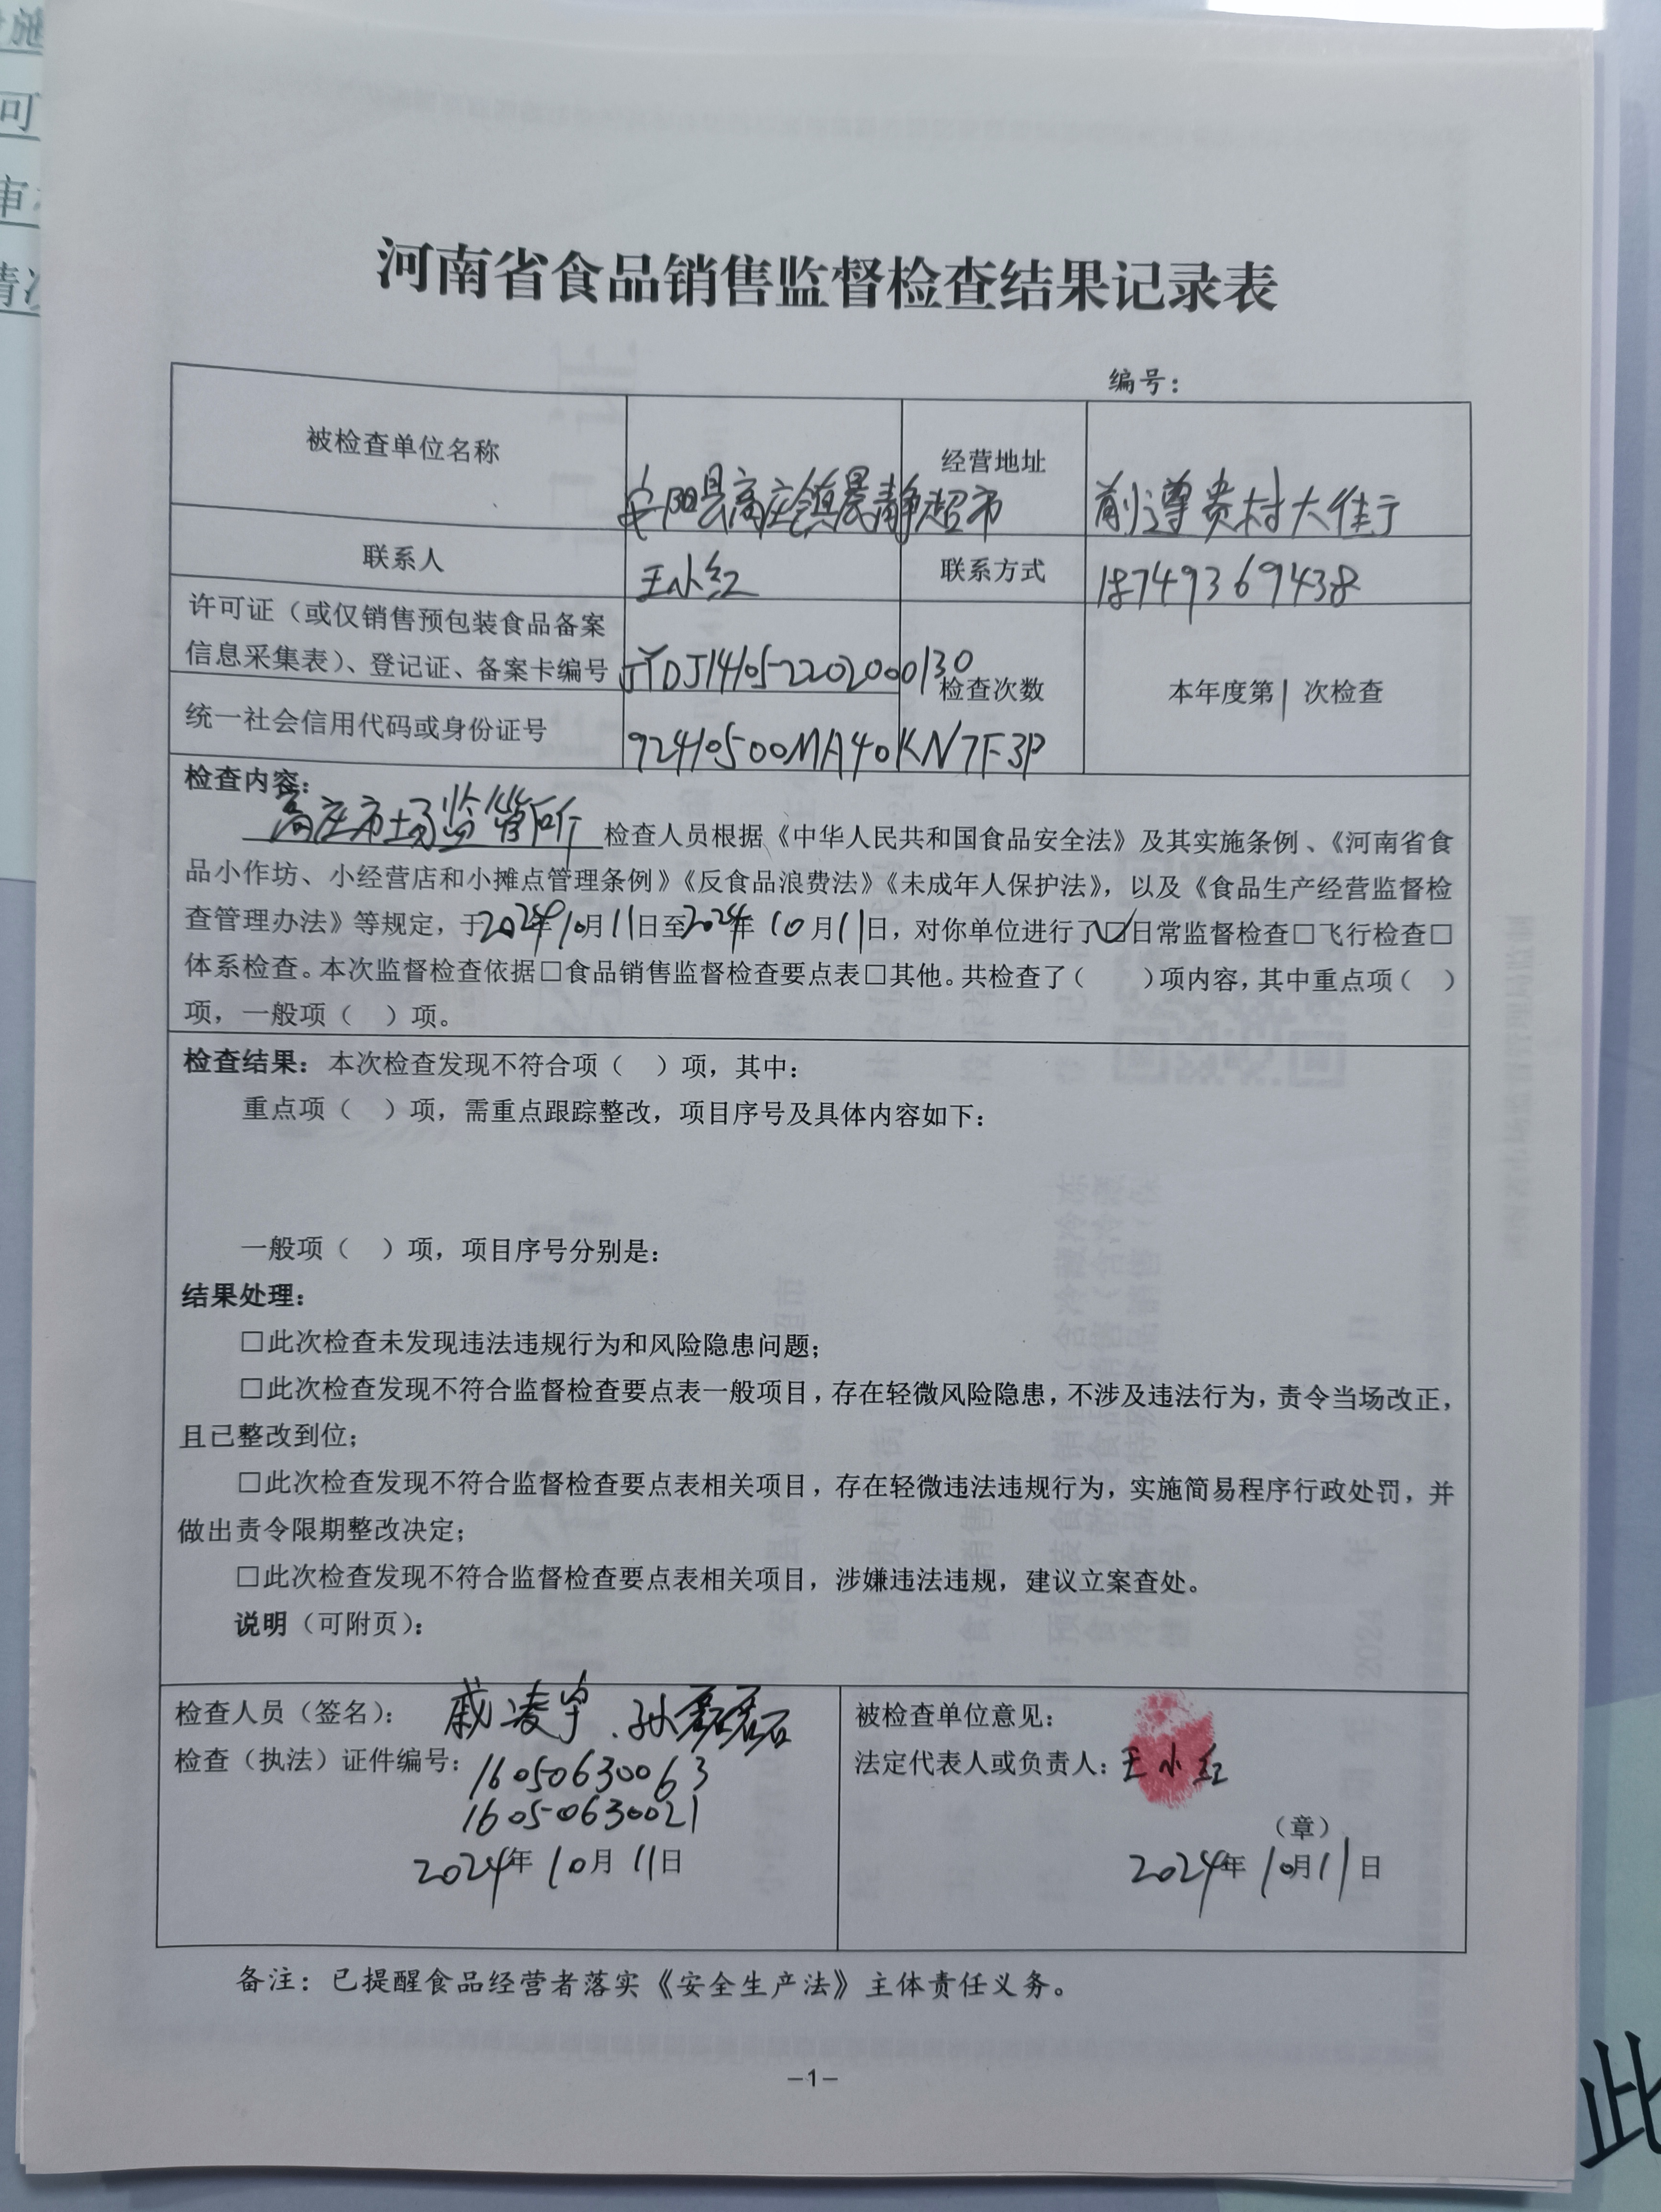 河南省食品销售监督检查结果记录表
编号：
被检查单位名称 安阳县高庄镇晨静超市 经营地址 前遵贵村大街
联系人 王小红 联系方式 18749369438
许可证（或仅销售预包装食品备案
信息采集表）、登记证、备案卡编号 JYDJ14105220200130 检查次数 本年度第1次检查
统一社会信用代码或身份证号 92410500MA40KN7F3P
检查内容：
高庄市场监管所检查人员根据《中华人民共和国食品安全法》及其实施条例、《河南省食
品小作坊、小经营店和小摊点管理条例》《反食品浪费法》《未成年人保护法》，以及《食品生产经营监督检
查管理办法》等规定，于2024年10月11日至2024年10月11日，对你单位进行了☑日常监督检查□飞行检查□
体系检查。本次监督检查依据□食品销售监督检查要点表□其他。共检查了（ ）项内容，其中重点项（ ）
项，一般项（ ）项。
检查结果：本次检查发现不符合项（ ）项，其中：
重点项（ ）项，需重点跟踪整改，项目序号及具体内容如下：
一般项（ ）项，项目序号分别是：
结果处理：
□此次检查未发现违法违规行为和风险隐患问题；
□此次检查发现不符合监督检查要点表一般项目，存在轻微风险隐患，不涉及违法行为，责令当场改正，
且已整改到位；
□此次检查发现不符合监督检查要点表相关项目，存在轻微违法违规行为，实施简易程序行政处罚，并
做出责令限期整改决定；
□此次检查发现不符合监督检查要点表相关项目，涉嫌违法违规，建议立案查处。
说明（可附页）：
检查人员（签名）：戚凌宇、孙磊磊
检查（执法）证件编号：16050630063
16050630021
2024年10月11日
被检查单位意见：
法定代表人或负责人：王小红
（章）
2024年10月11日
备注：已提醒食品经营者落实《安全生产法》主体责任义务。
—1—
此